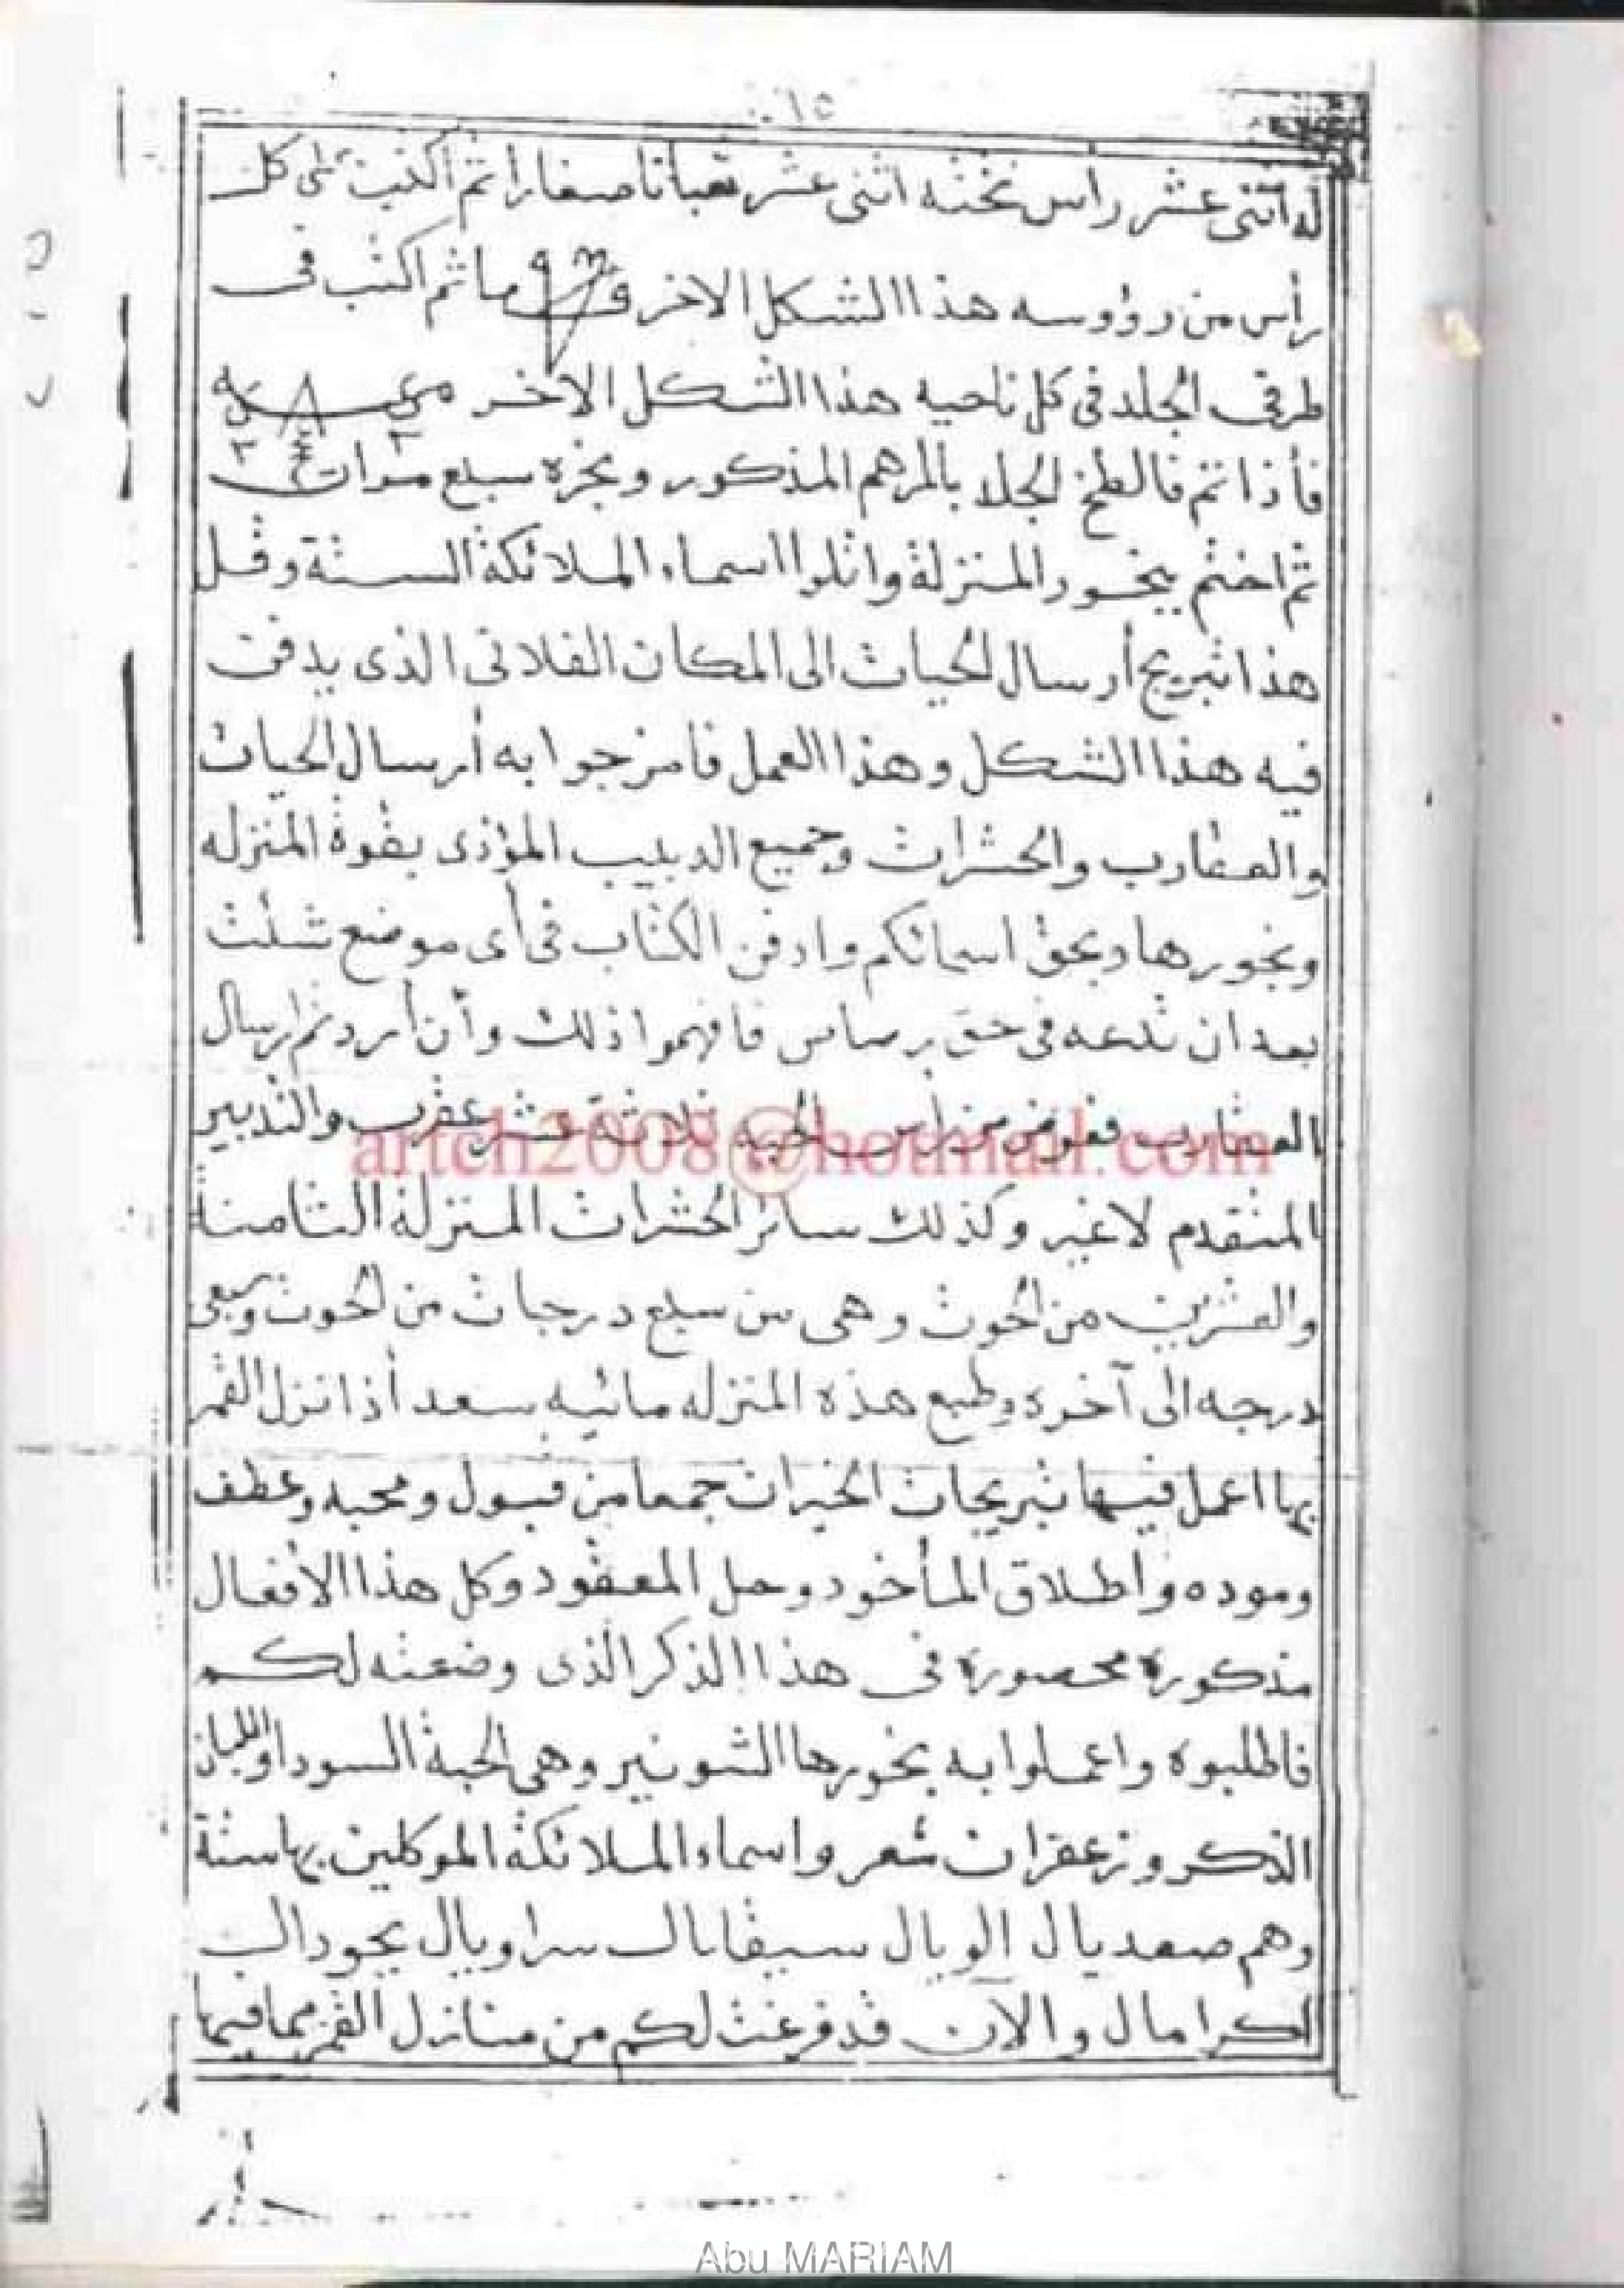 ٠١٥
له اثنى عشر رأس تحته اثنى عشر ثعبانا صغارا ثم اكتب على كل
رأس من رؤوسه هذا الشكل الاخر ثم اكتب فى
طرفى الجلد فى كل ناحيه هذا الشكل الاخر
فأذا تم فالطخ الجلد بالمرهم المذكور وبخره سبع مرات
ثم اختم ببخور المنزلة واتلوا اسماء الملائكة الستة وقل
هذا تبريج أرسال الحيات الى المكان الفلانى الذى يدفن
فيه هذا الشكل وهذا العمل فامزجوا به أرسال الحيات
والعقارب والحشرات وجميع الدبيب المؤذى بقوة المنزله
وبخورها وبحق اسمائكم وادفن الكتاب فى أى موضع شئت
بعد ان تدعه فى حق رصاص فافهموا ذلك وأن أردتم ارسال
العقارب فعوض من رأس الحيه ثلاثة عشر عقرب والتدبير
artch2008@hotmail.com
المتقدم لا غير وكذلك سائر الحشرات المنزلة الثامنة
والعشرين من الحوت وهى من سبع درجات من الحوت وبعى
درجه الى آخره وطبع هذه المنزله مائيه سعد أذا نزل القمر
بها اعمل فيها تبريجات الخيرات جمعا من قبول ومحبه وعطف
وموده وأطلاق المأخود وحل المعقود وكل هذا الافعال
مذكورة محصورة فى هذا الذكر الذى وضعته لكم
فاطلبوه واعملوا به بخورها الشونير وهى الحبة السودا واللبان
الذكر وزعفران شعر واسماء الملائكة الموكلين بها ستة
وهم صعديال الويال سيفايال سراويال يجودال
اكرامال والان قد فرغت لكم من منازل القمر بما فيها
Abu MARIAM